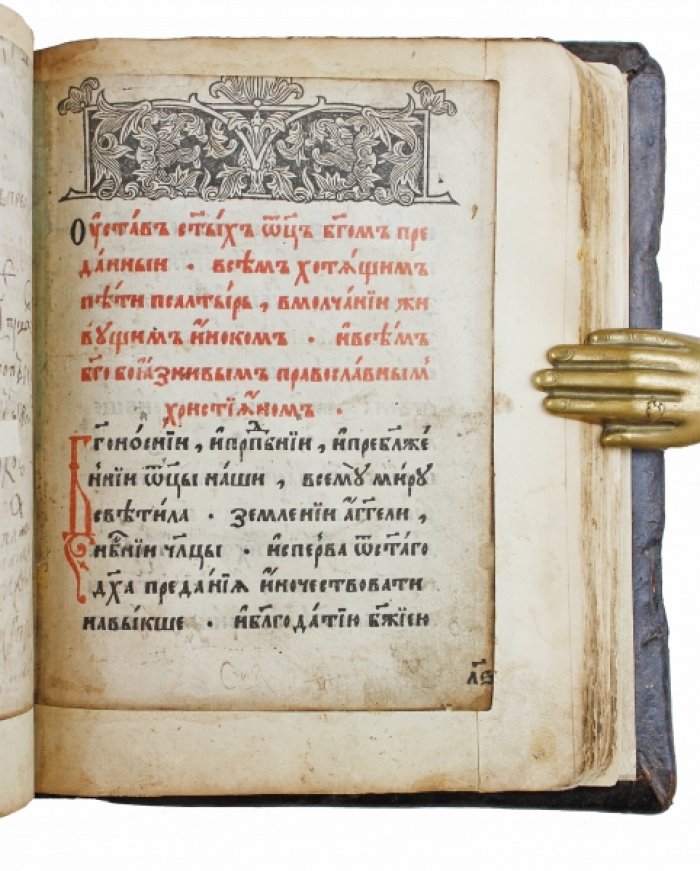 Оуста́въ ст҃ы́хъ ѿц҃ъ бг҃омъ пре
да́нныи . всѣ́мъ хотѧ́щимъ
пѣ́ти псалты́рь , вмолча́нїи жи
ву́щимъ и́нокомъ . и҆всѣ́мъ
бг҃обоꙗ́знивымъ правосла́внымъ
христїꙗ́номъ .
Бг҃оно́снїи , и҆прⷣпбнїи , и҆пребл҃же
ннїи ѿц҃ы на́ши , всему̀ ми́ру
свѣти́ла . земле́нїи а҆́гг҃ели ,
и҆нбⷭ҇нїи чл҃цы . и҆спе́рва ѿст҃а́го
дх҃а преда́нїѧ и҆́ночествовати
навы́кше . и҆бл҃года́тїю бж҃їею